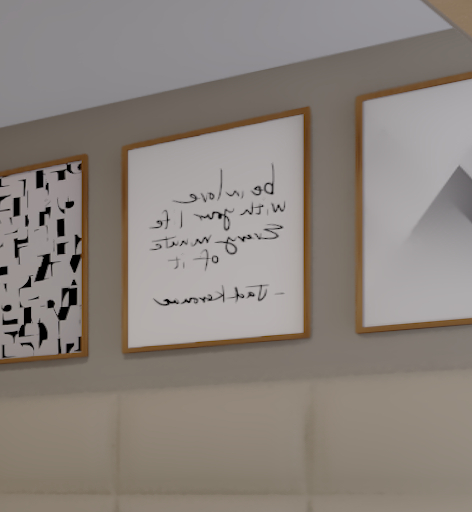 be in love
with your life
Every minute
of it
- Jack Kerouac